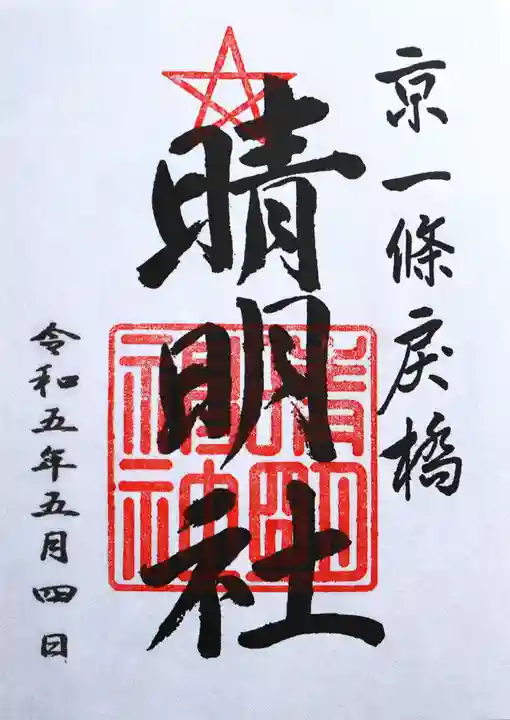 京一條戻橋
晴明社
晴明
神社
令和五年五月四日